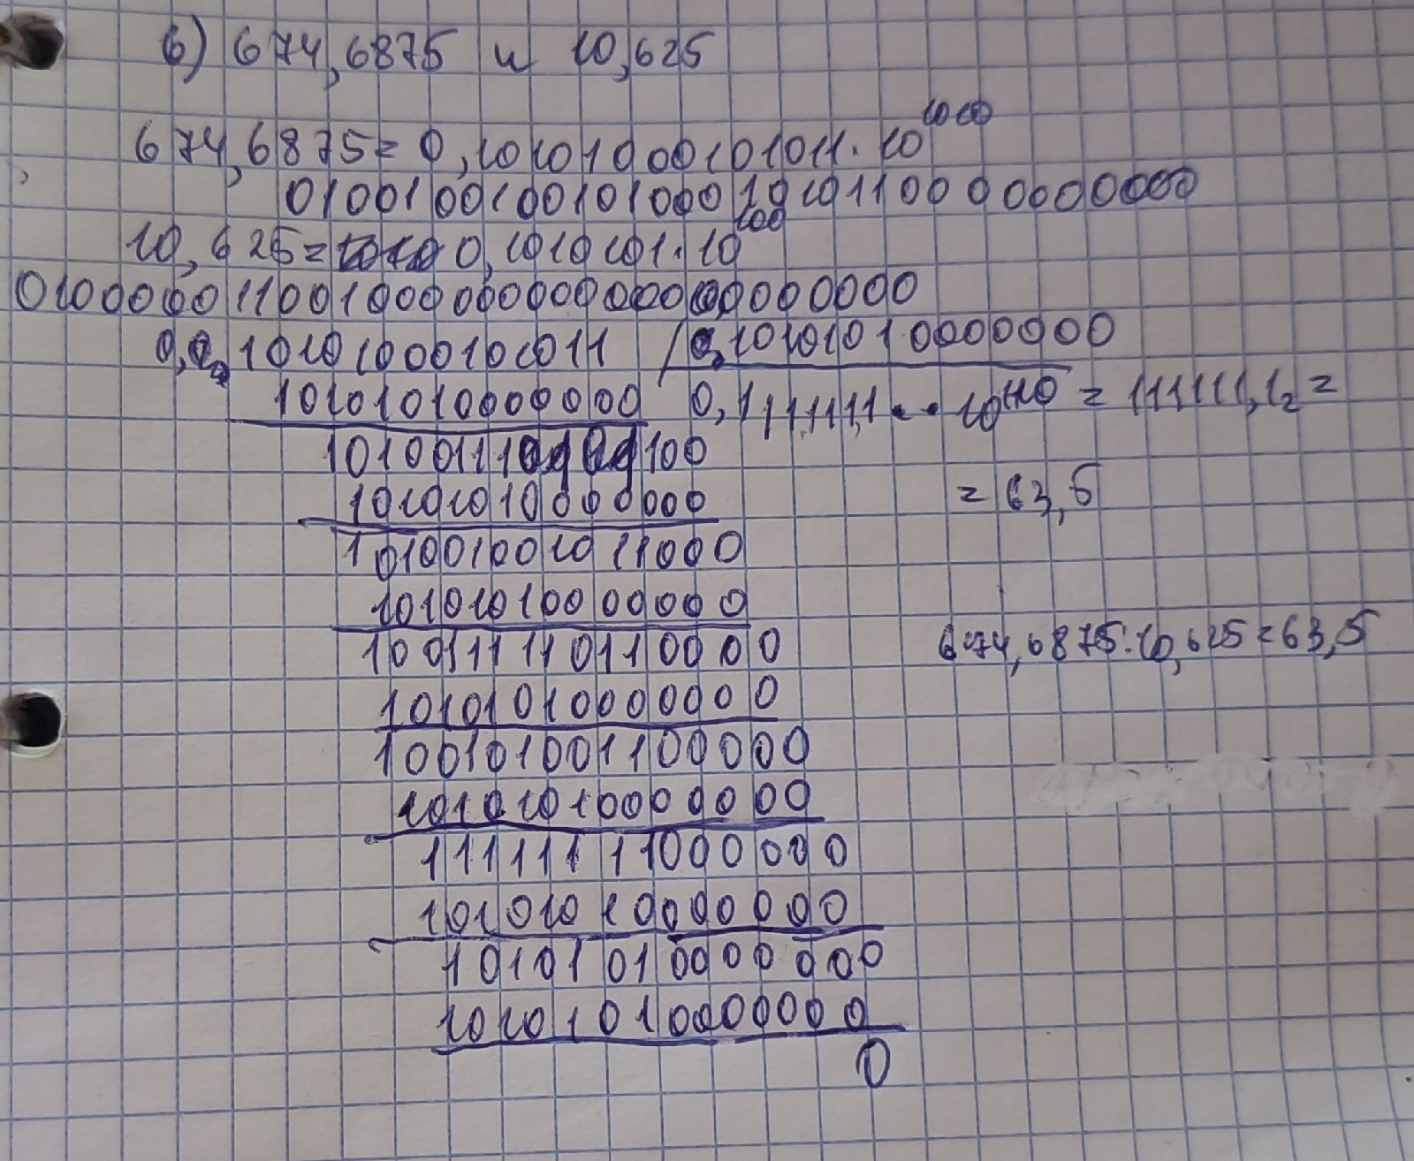 б) 674,6875 и 10,625
674,6875 = 0,10101000101011·10¹⁰¹⁰
01001001001010001010110000000000
10,625 = 0,1010101·10¹⁰⁰
01000001100100000000000000000000
0,10101000101011 / 0,10101010000000
10101010000000 0,1111111·10¹¹⁰ = 111111,1₂ =
10100111 100
10101010000000 = 63,5
101001001011000
10101010000000
100111110110000 674,6875:10,625=63,5
10101010000000
100101001100000
10101010000000
11111111000000
10101010000000
10101010000000
10101010000000
0